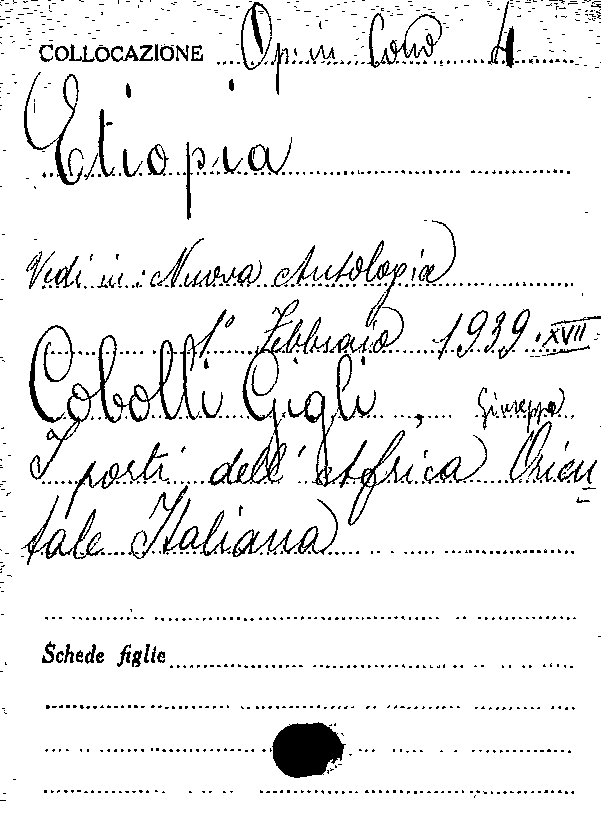 COLLOCAZIONE Op. in Cons 4
Etiopia
Vedi in: Nuova Antologia
1° Febbraio 1939. XVII
Cobolli Gigli, Giuseppe
I porti dell'Africa Orien
tale Italiana
Schede figlie